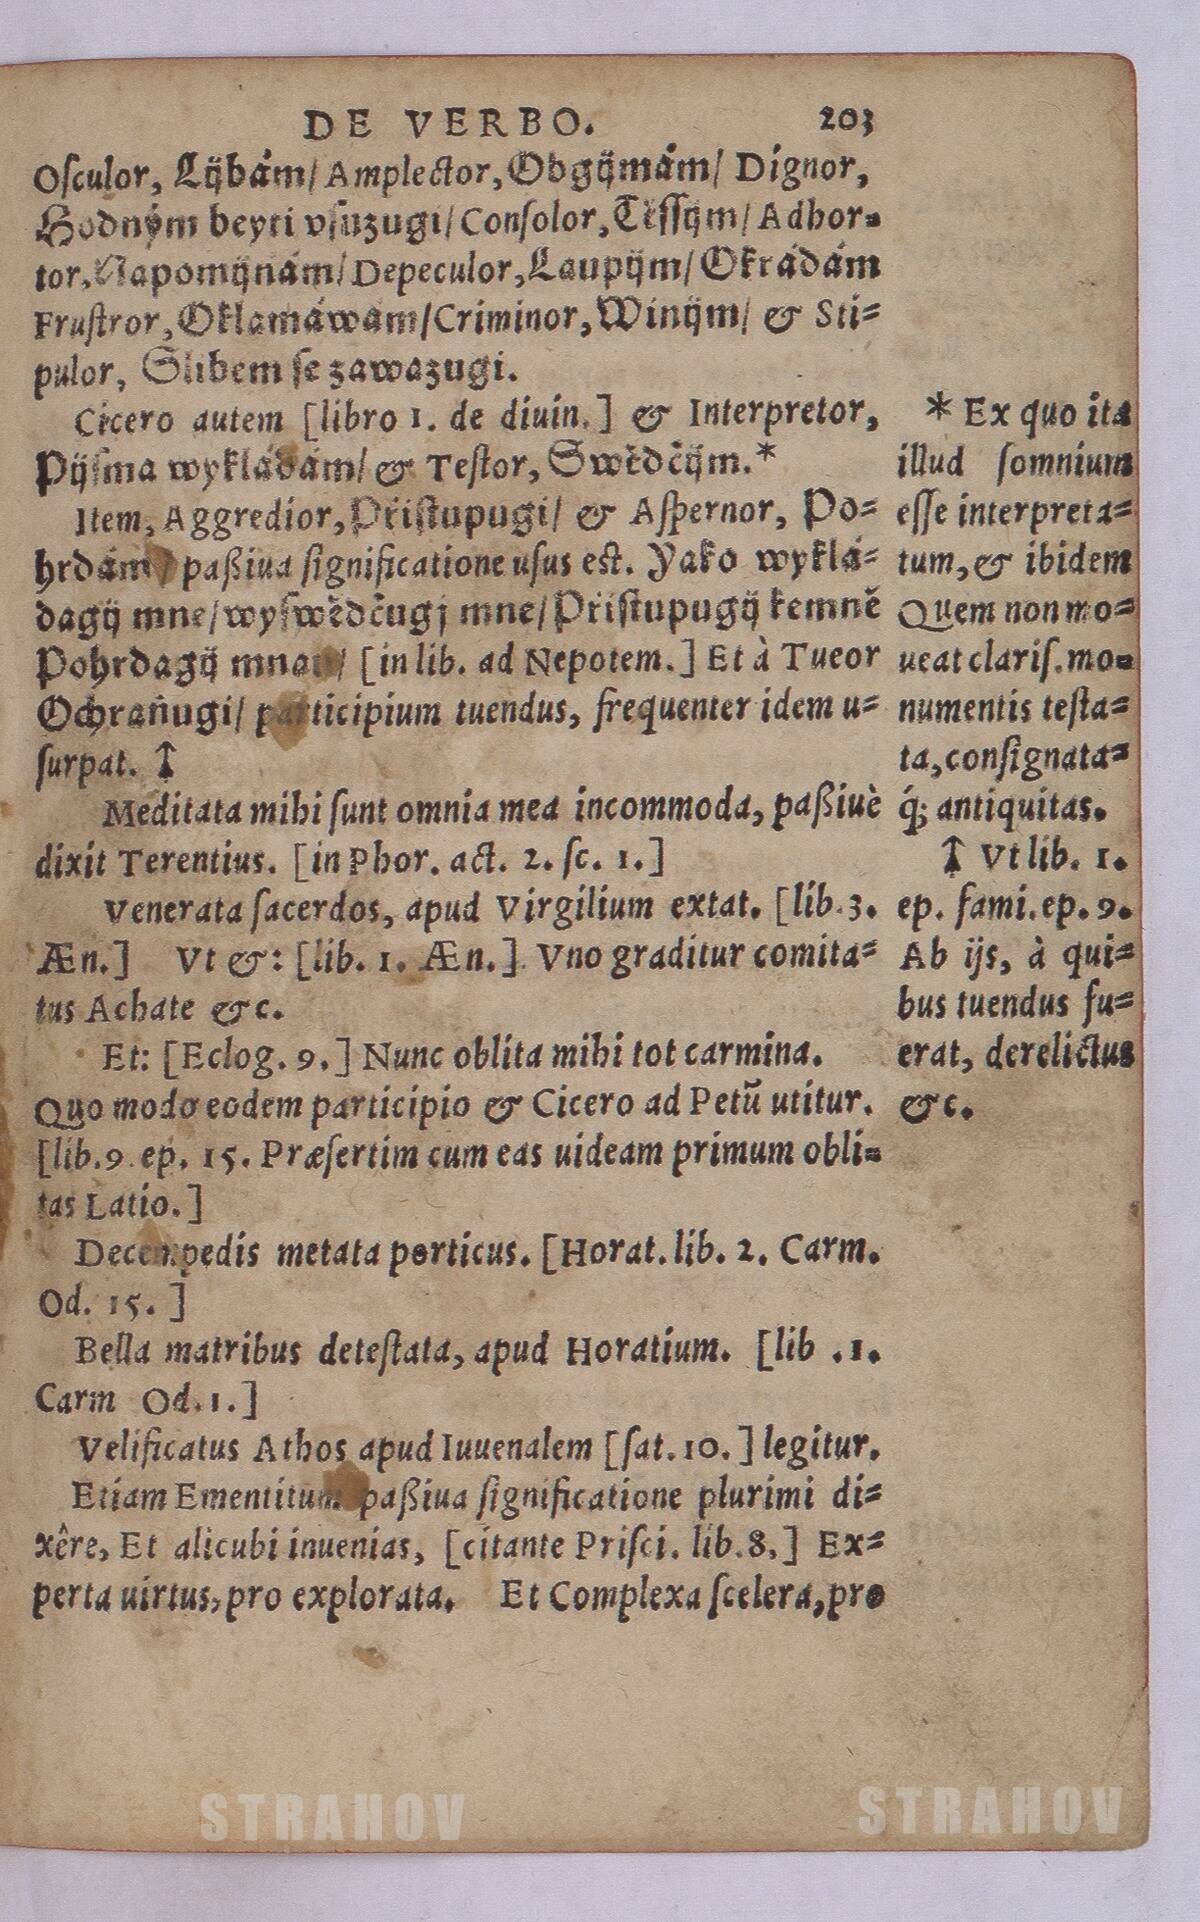 DE VERBO. 203
Osculor, Lijbám/ Amplector, Obgijmám/ Dignor,
Hodným beyti vsuzugi/ Consolor, Těssijm/ Adhor=
tor, Napomijnám/ Depeculor, Laupijm/ Okrádám
Frustror, Oklamáwám/ Criminor, Winijm/ & Sti=
pulor, Slibem se zawazugi.
Cicero autem [libro 1. de diuin.] & Interpretor,
Pijsma wykládám/ & Testor, Swědčijm.*
Item, Aggredior, Přistupugi/ & Aspernor, Po=
hrdám/ paßiua significatione usus est. Yako wyklá=
dagij mne/ wyswědčugj mne/ Přistupugij kemně
Pohrdagij mnau/ [in lib. ad Nepotem.] Et à Tueor
Ochraňugi/ participium tuendus, frequenter idem u=
surpat. †
Meditata mihi sunt omnia mea incommoda, paßiuè
dixit Terentius. [in Phor. act. 2. sc. 1.]
Venerata sacerdos, apud Virgilium extat. [lib. 3.
Æn.] Vt &: [lib. 1. Æn.] Vno graditur comita=
tus Achate &c.
Et: [Eclog. 9.] Nunc oblita mihi tot carmina.
Quo modo eodem participio & Cicero ad Petū utitur.
[lib. 9. ep. 15. Præsertim cum eas uideam primum obli=
tas Latio.]
Decempedis metata porticus. [Horat. lib. 2. Carm.
Od. 15.]
Bella matribus detestata, apud Horatium. [lib .1.
Carm Od. 1.]
Velificatus Athos apud Iuuenalem [sat. 10.] legitur.
Etiam Ementitum paßiua significatione plurimi di=
xêre, Et alicubi inuenias, [citante Prisci. lib. 8.] Ex=
perta uirtus, pro explorata. Et Complexa scelera, pro
* Ex quo ita
illud somnium
esse interpreta=
tum, & ibidem
Quem non mo=
ueat claris. mo=
numentis testa=
ta, consignata=
q́; antiquitas.
† Vt lib. 1.
ep. fami. ep. 9.
Ab ijs, à qui=
bus tuendus fu=
erat, derelictus
&c.
STRAHOV
STRAHOV